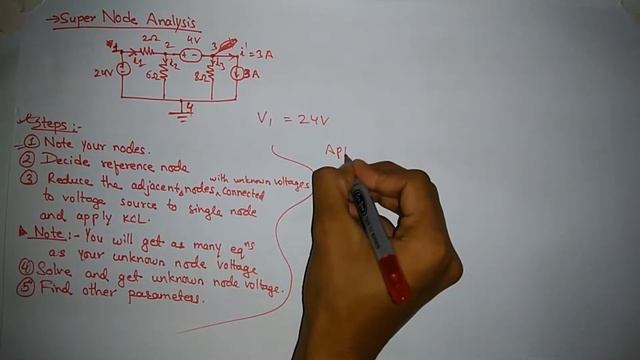 → Super Node Analysis
1 2Ω 2 4V 3 i' = 3A
i₁ i₂ i₃
24V 6Ω 8Ω 3A
4
V₁ = 24V
Steps:-
Apl
① Note your nodes.
② Decide reference node
with unknown voltages
③ Reduce the adjacent nodes, connected
to voltage source to single node
and apply KCL.
Note:- You will get as many eqⁿs
as your unknown node voltage
④ Solve and get unknown node voltage.
⑤ Find other parameters.